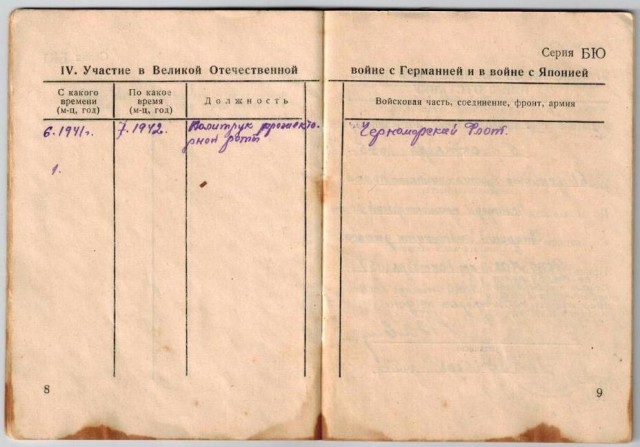 Серия БЮ
IV. Участие в Великой Отечественной войне с Германией и в войне с Японией
С какого времени (м-ц, год)
По какое время (м-ц, год)
Должность
Войсковая часть, соединение, фронт, армия
6.1941г.
7.1942.
Политрук прожекто-
рной роты
Черноморский Флот.
1.
8
9